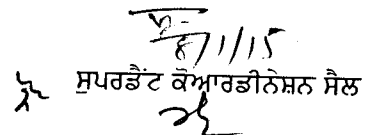 8/1/15
ਸੁਪਰਡੈਂਟ ਕੋਆਰਡੀਨੇਸ਼ਨ ਸੈਲ